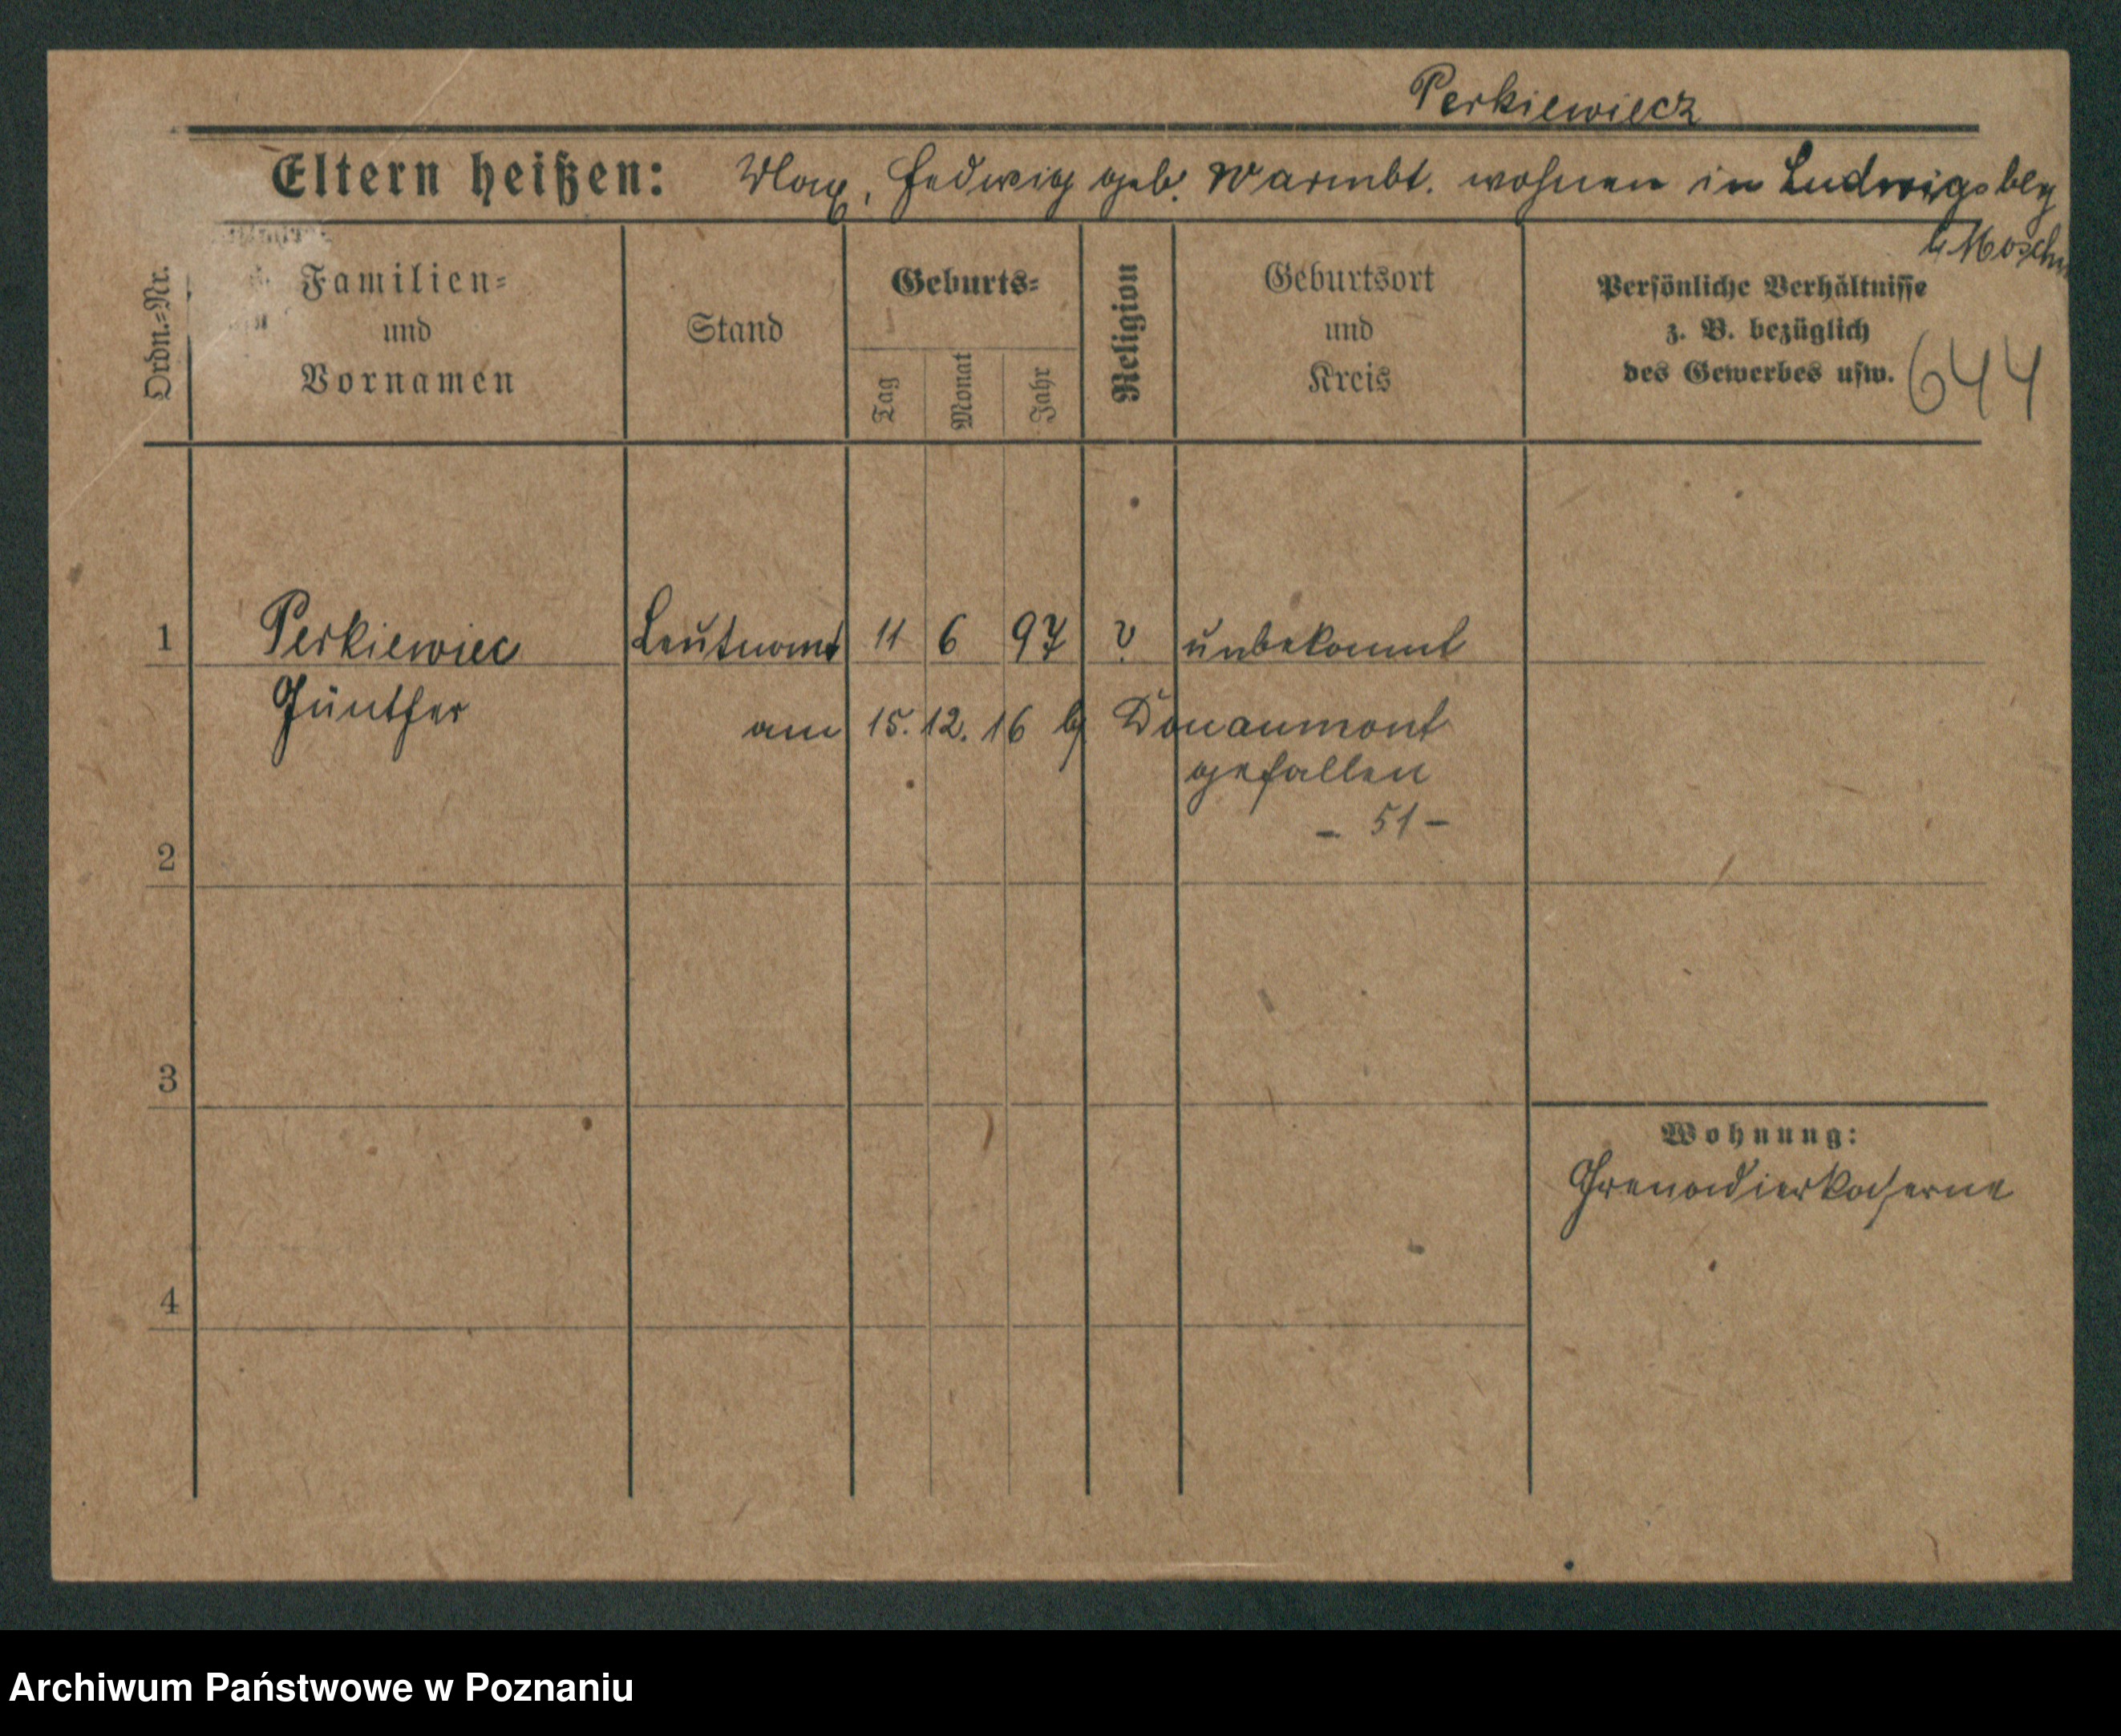 Perkiewiecz
Eltern heißen: Max, Hedwig geb. Warmbt. wohnen in Ludwigsbg
b/ Moschin
Ordn.=Nr.
Familien=
und
Vornamen
Stand
Geburts=
Tag
Monat
Jahr
Religion
Geburtsort
und
Kreis
Persönliche Verhältnisse
z. B. bezüglich
des Gewerbes usw.
644
1 Perkiewiec Leutnant 11 6 97 ? unbekannt
Günther
am 15. 12. 16 b/ Douaumont
gefallen
- 51 -
2
3
Wohnung:
Grenadierkaserne
4
Archiwum Państwowe w Poznaniu